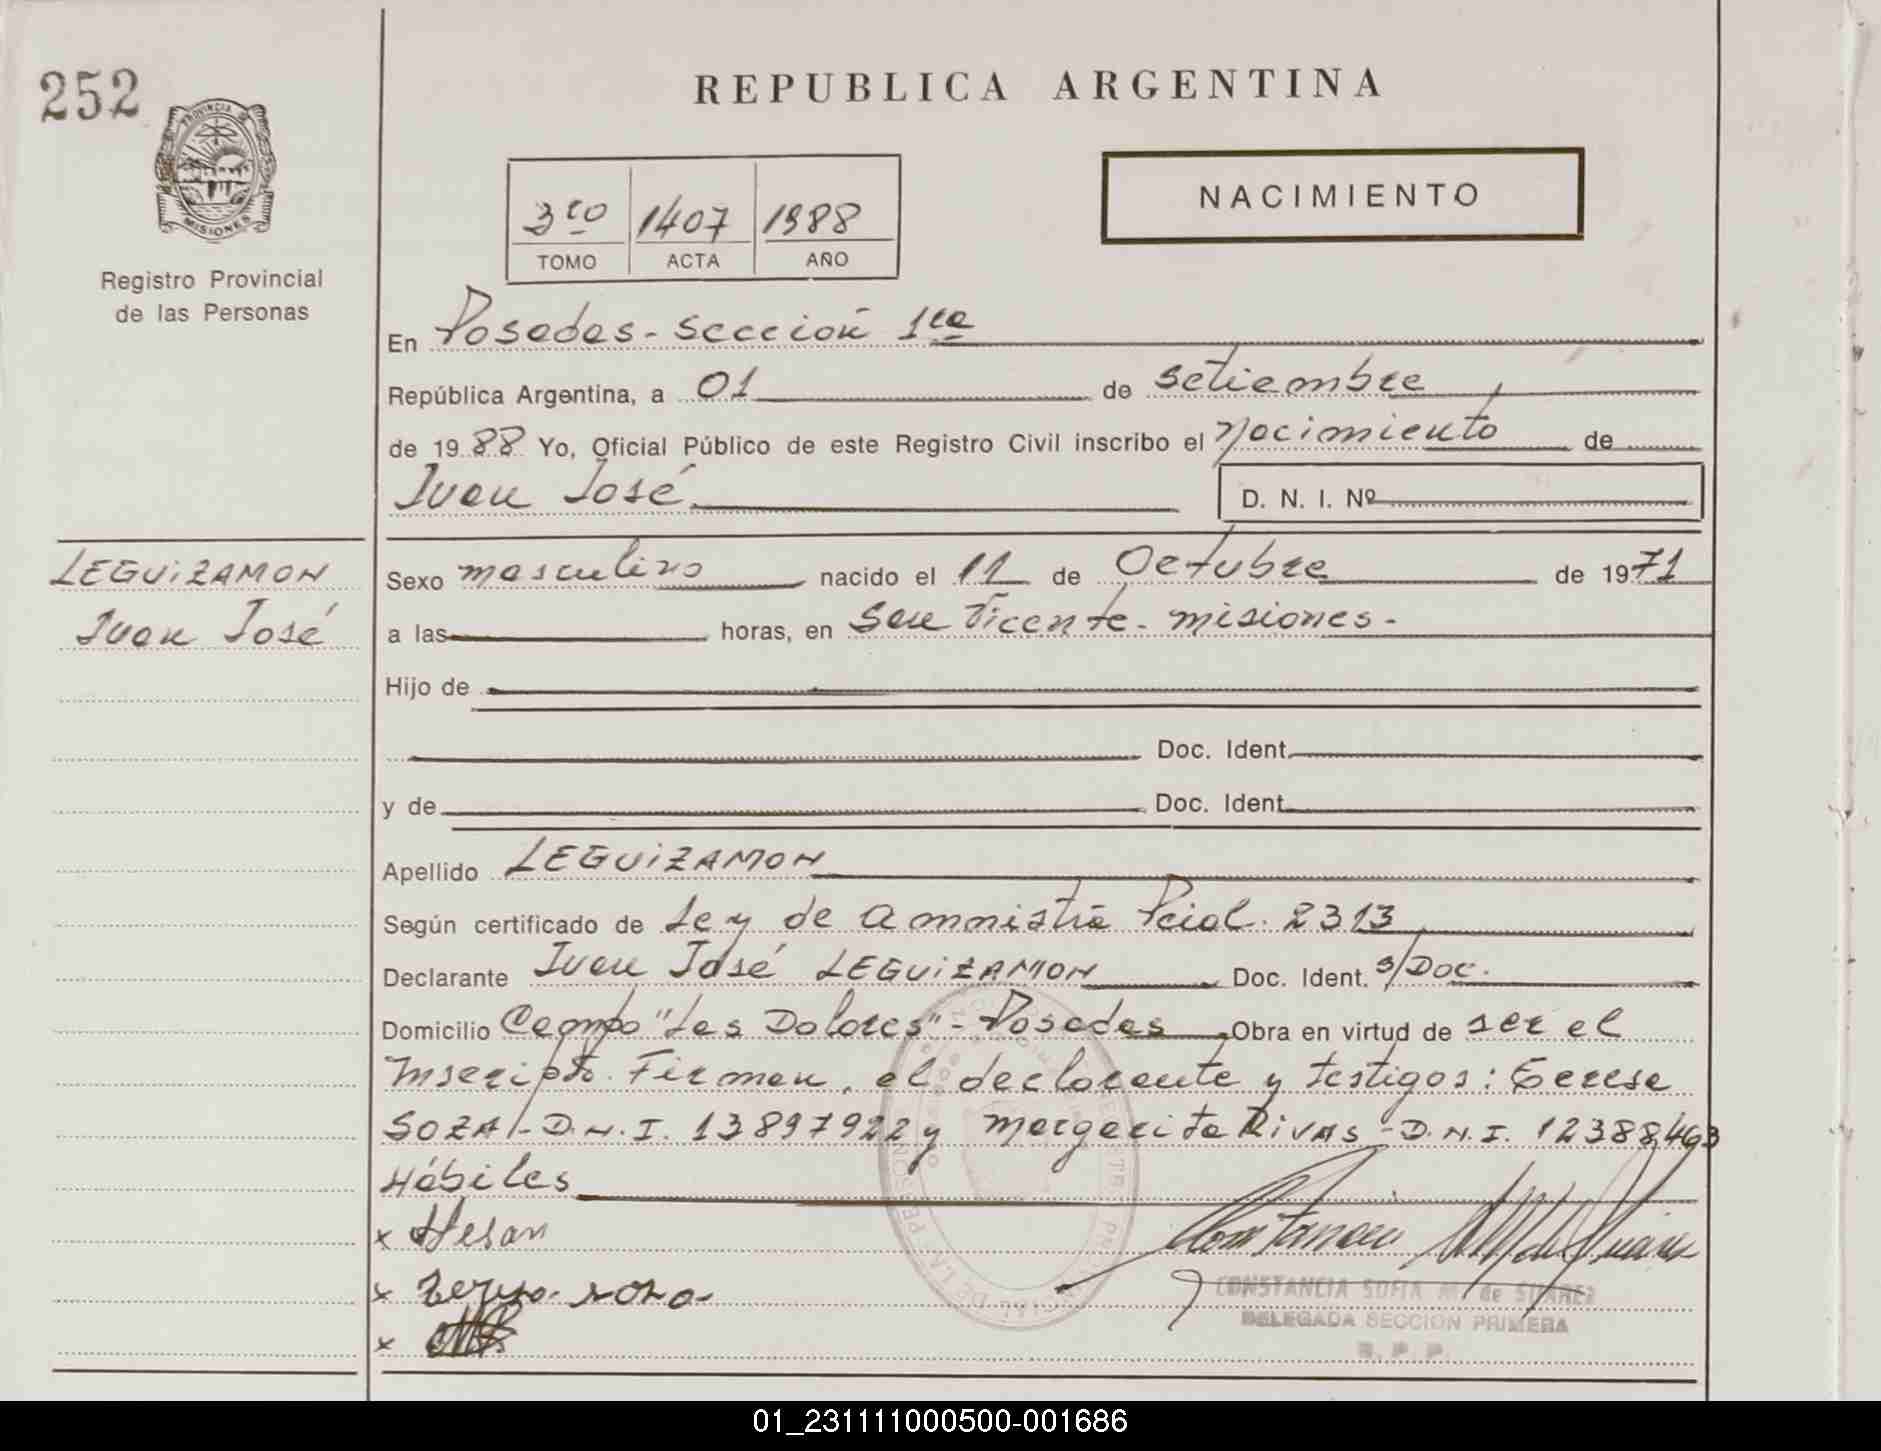 252
PROVINCIA
MISIONES
Registro Provincial
de las Personas
REPUBLICA ARGENTINA
3ro 1407 1988
TOMO ACTA AÑO
NACIMIENTO
En Posadas - Sección 1ra
República Argentina, a 01 de setiembre
de 1988 Yo, Oficial Público de este Registro Civil inscribo el Nacimiento de
Juan José D. N. I. Nº
LEGUiZAMON
Juan José
Sexo masculino nacido el 11 de Octubre de 1971
a las horas, en San Vicente - misiones -
Hijo de
Doc. Ident.
y de Doc. Ident.
Apellido LEGUiZAMON
Según certificado de Ley de Amnistía Pcial. 2313
Declarante Juan José LEGUiZAMON Doc. Ident. s/Doc.
Domicilio Campo "Las Dolores" - Posadas Obra en virtud de ser el
Inscripto. Firman, el declarante y testigos: Teresa
SOZA - D.N.I. 13897922 y Margarita RIVAS - D.N.I. 12388,463
Hábiles
x
x
x
CONSTANCIA SOFIA M. de SUAREZ
DELEGADA SECCION PRIMERA
R. P. P.
01_231111000500-001686